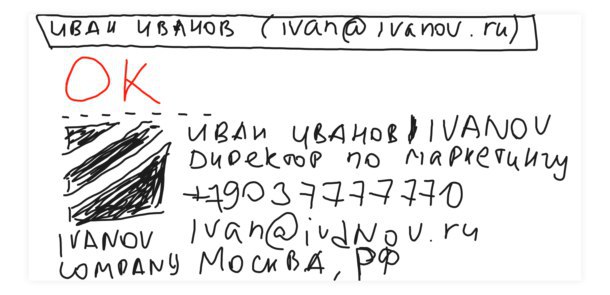 ИВАН ИВАНОВ (ivan@ivanov.ru)
OK
ИВАН ИВАНОВ | IVANOV
ДИРЕКТОР ПО МАРКЕТИНГУ
+79037777770
ivan@ivanov.ru
IVANOV
COMPANY
МОСКВА, РФ